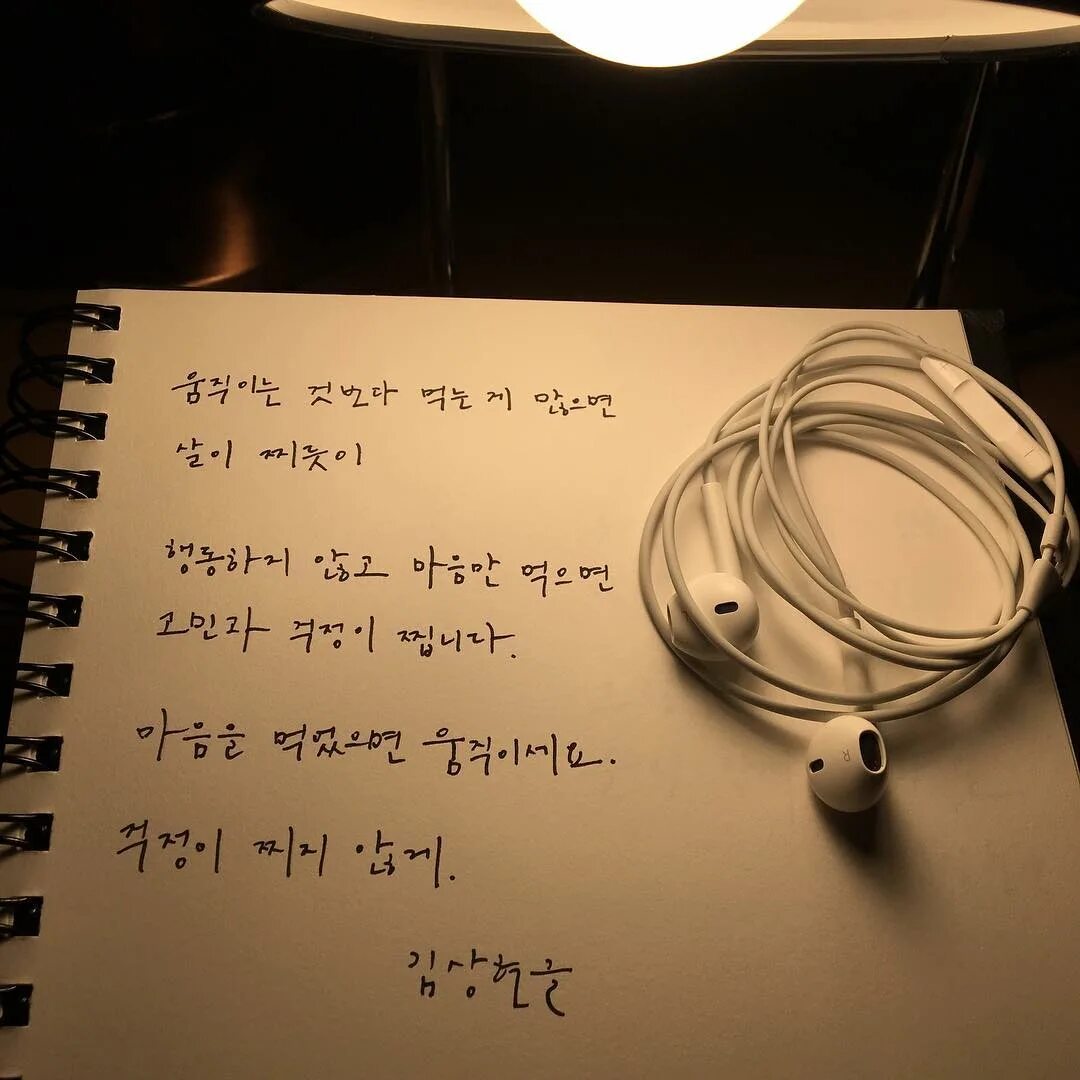 움직이는 것보다 먹는 게 많으면
살이 찌듯이
행동하지 않고 마음만 먹으면
고민과 걱정이 찝니다.
마음을 먹었으면 움직이세요.
걱정이 찌지 않게.
김상현글
R